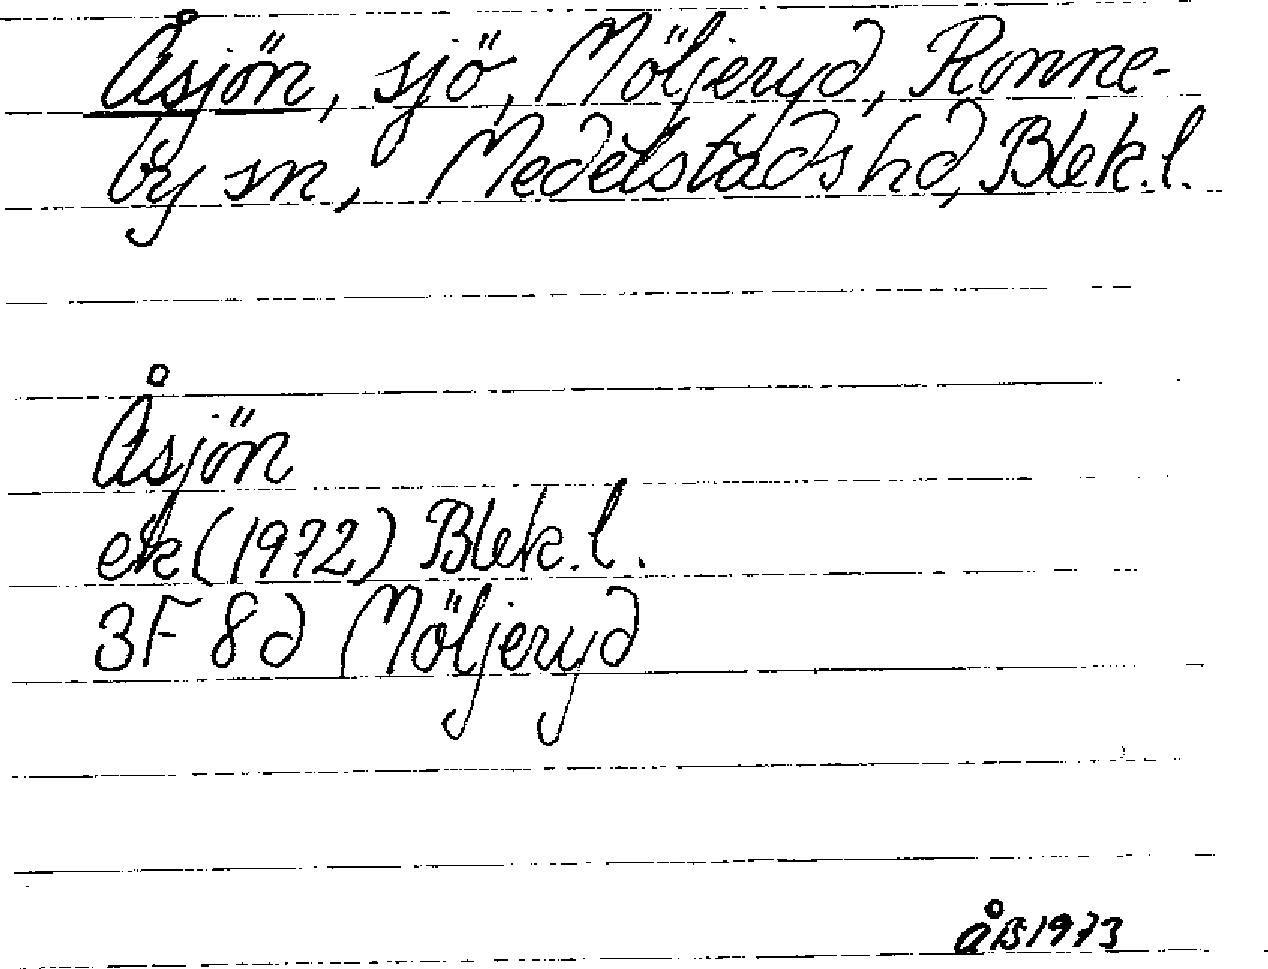 Åsjön, sjö, Möljeryd, Ronne-
by sn, Medelstads hd, Blek. l.
Åsjön
ek (1972) Blek. l.
3F 8d Möljeryd
ÅB 1973